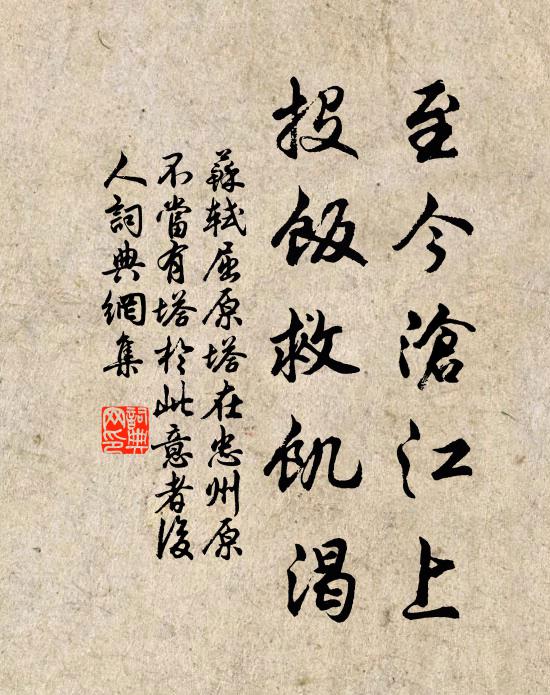 至今滄江上
投飯救飢渴
蘇軾屈原塔在忠州原
不當有塔於此意者後
人詞典網集
詞典网印